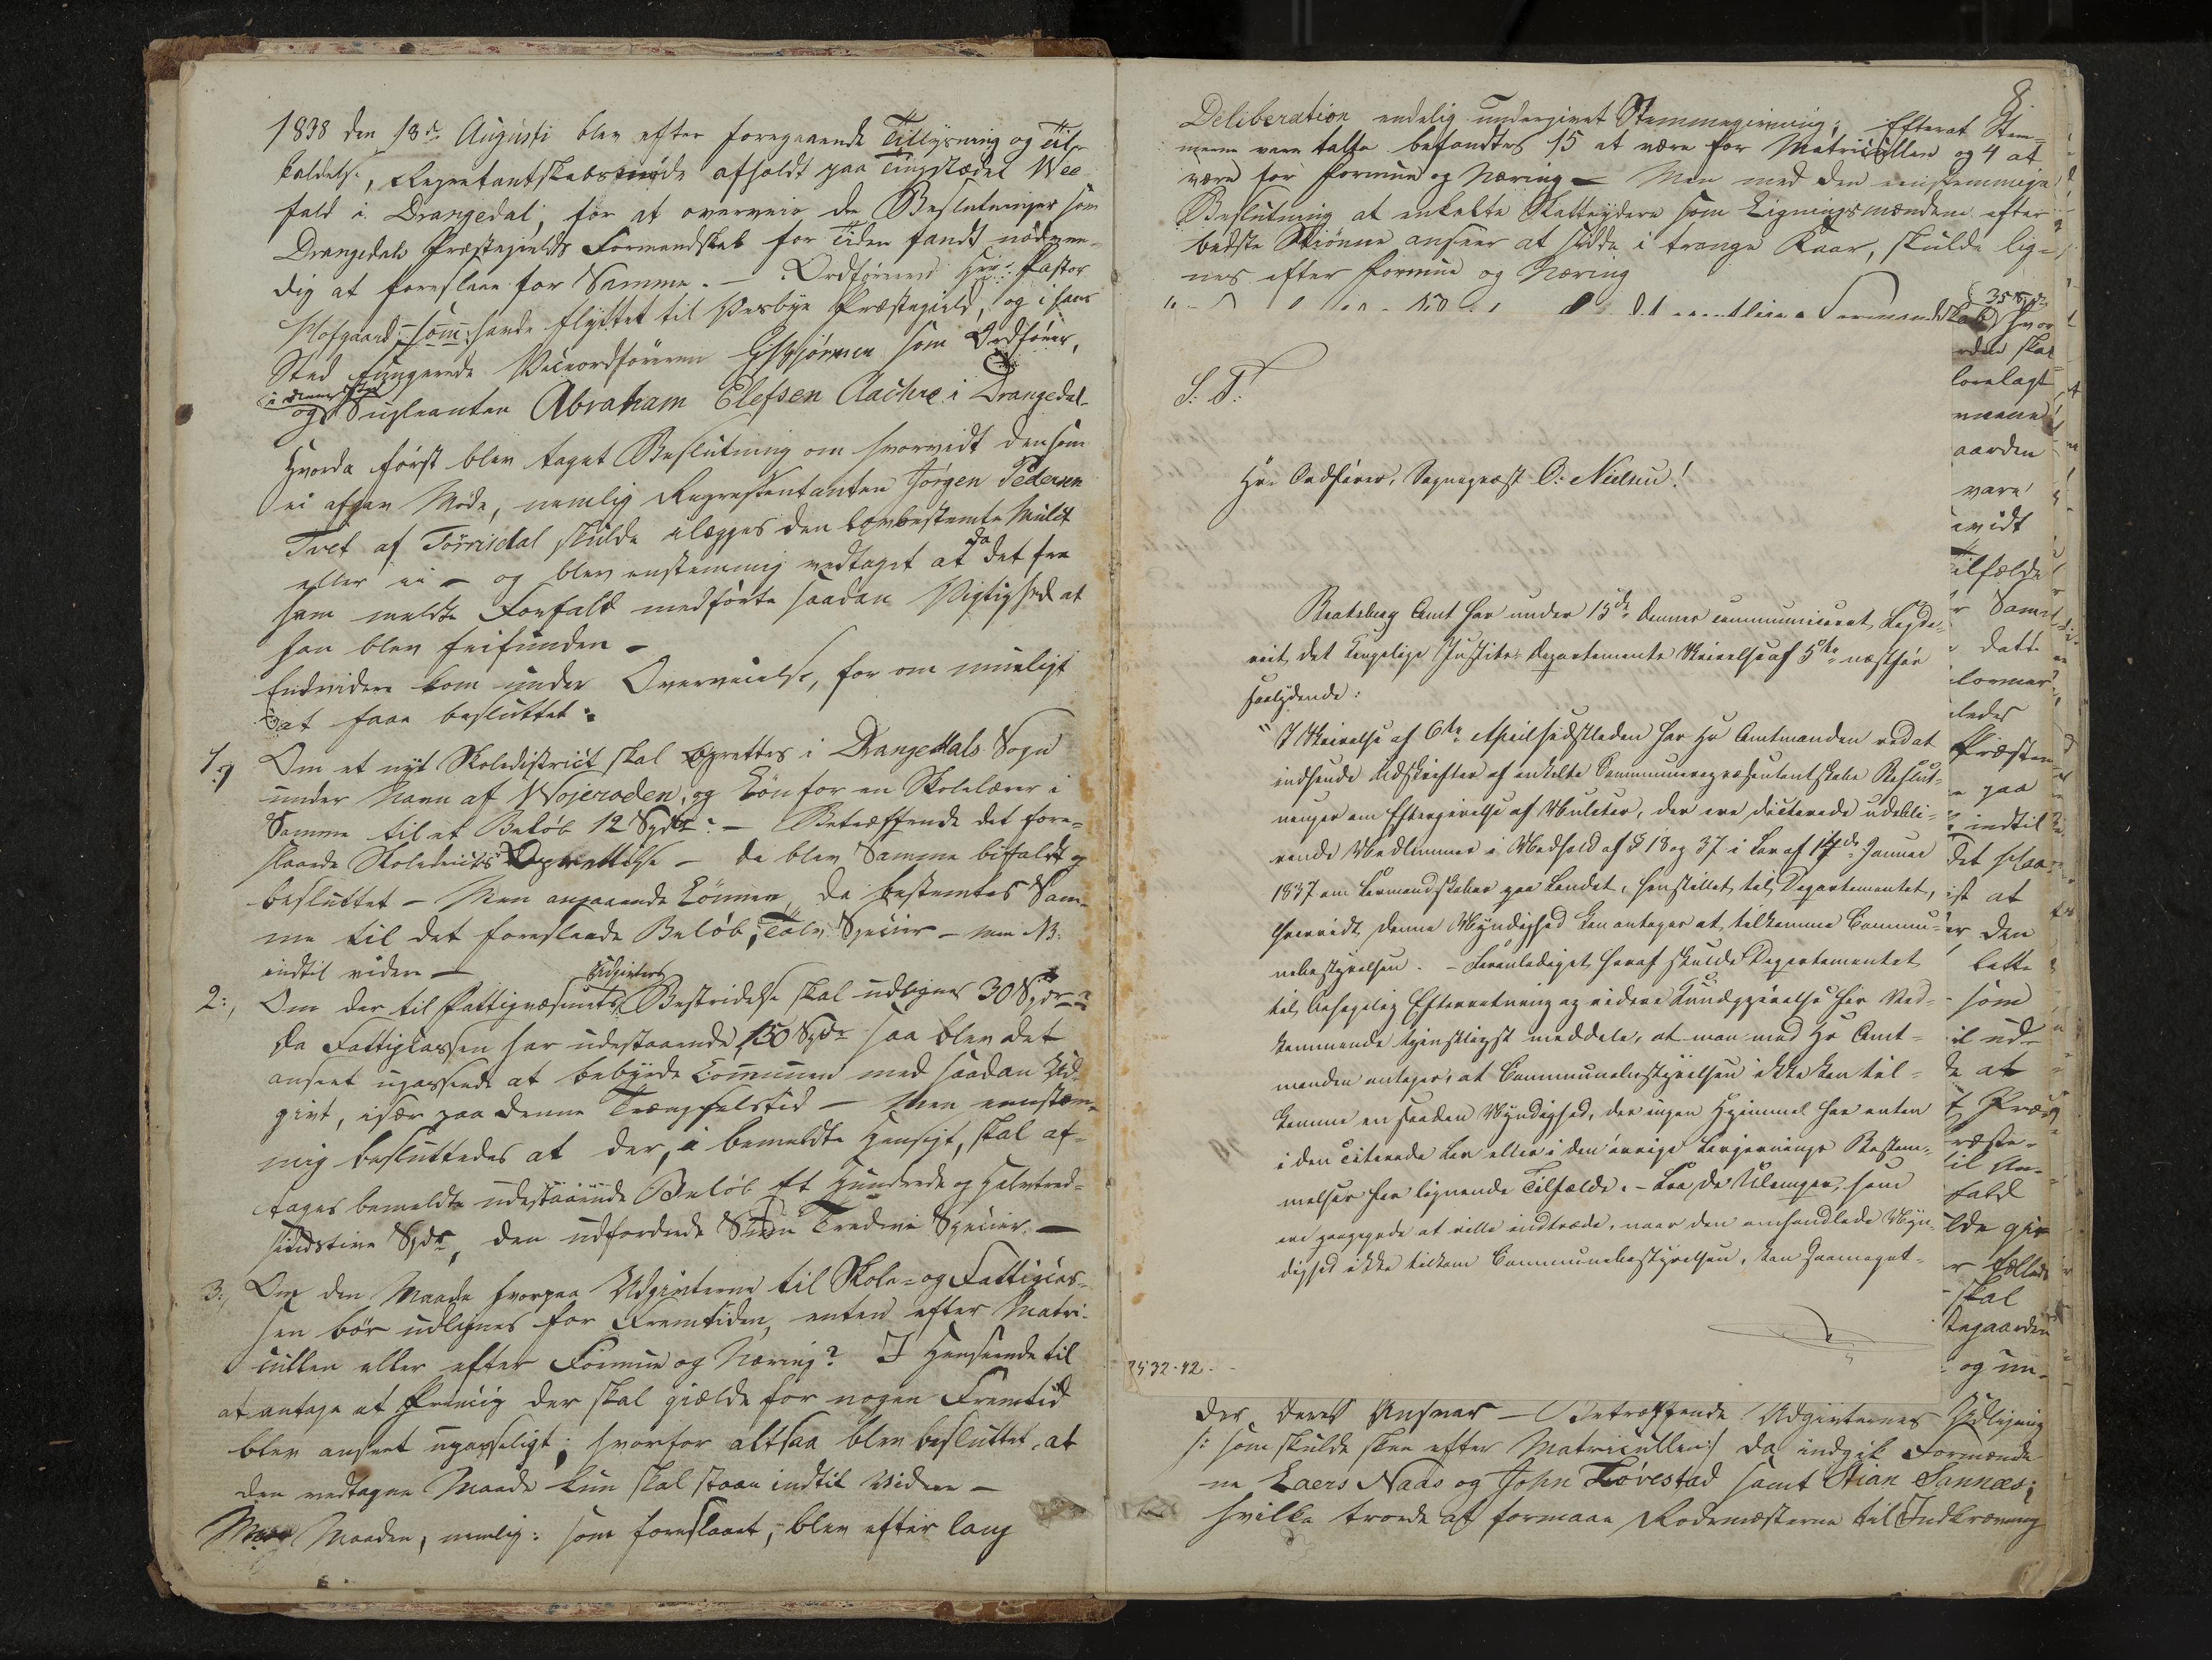 1838 den 18de Augusti blev efter foregaaende Tillysning og Til-
kaldelse, Repræsentantskabsmøde afholdt paa Tingstædet Wee-
fald i Drangedal, for at overveie de Beslutninger som
Drangedals Præstegields Formandskab for Tiden fandt nödven-
dig at foreslaae for Samme. — Ordföreren Hrr: Pastor
Hofgaard, som havde flyttet til Præstegield, og i hans
Sted fungerede Viceordföreren som Ordförer,
i dennes Sted
og Supleanten Abraham Elefsen Aachre i Drangedal.
Hvorda först blev taget Beslutning om hvorvidt den som
ei afgav Möde, nemlig Repræsentanten Jørgen Pedersen
Tvet af Törrisdal skulde ilægges den lovbestemte Mulct
eller ei — og blev enstemmig vedtaget at da det fra
ham meldte Forfald medförte saadan Vigtighed at
han blev frifunden —
Endvidere kom under Overveielse, for om mueligt
at faae besluttet:
1, Om et nyt Skoledistrict skal oprettes i Drangedals Sogn
under Navn af Wojeroden, og Lön for en Skolelærer i
Samme til et Belöb 12 Spdlr? — Betræffende det fore-
slaaede Skoledistricts Oprettelse — da blev Samme bifaldt og
besluttet — Men angaaende Lönnen, da bestemtes Sam-
me til det foreslaaede Belöb, Tolv Specier — men NB.
indtil videre —
Udgivters
2:, Om der til Fattigvæsenets Bestridelse skal udlignes 30 Spdr?
da Fattigcassen har udestaaende 150 Spdr saa blev det
anseet upassende at bebyrde Communen med saadan Ud-
givt, især paa denne Trængselstid — Men eenstem-
mig besluttedes at der, i bemeldte Hensigt, skal af-
tages bemeldte udestaaende Belöb Et Hundrede og Halvtred-
sindstive Spdr, den udfordrede Sum Tredive Specier. —
3:, Om den Maade hvorpaa Udgivterne til Skole- og Fattigcas-
sen bör udlignes for Fremtiden, enten efter Matri-
cullen eller efter Formue og Næring? I Henseende til
at antage et Princip der skal gielde for nogen Fremtid
blev anseet upasseligt; hvorfor altsaa blev besluttet, at
den vedtagne Maade kun skal staae indtil Videre —
Maaden, nemlig: som foreslaaet, — blev efter lang
8.
Deliberation endelig undergivet Stemmegivning; Efterat Stem-
merne vare talte befandtes 15 at være for Matricullen og 4 at
være for Formue og Næring — Men med den eenstemmige
Beslutning at enkelte Skatteydere som Ligningsmændene efter
bedste Skiönne anseer at sidde i trange Kaar, skulde lig-
nes efter Formue og Næring
35 Spdr
Formandskab hvor
S. T.
Hr. Ordförer, Sogneprest O: Nielsen!
Bratsberg Amt har under 15de dennes communiceret
det Kongelige Justits-Departements Skrivelse af 5te næstfør
saalydende:
"I Skrivelse af 6te April sidstleden har Hr Amtmanden ved at
indsende Udskrifter af enkelte Communerepræsentantskabs Beslut-
ninger om Eftergivelse af Mulcter, der ere dicterede udebli-
vende Medlemmer i Medhold af § 18 og 37 i Lov af 14de Januar
1837 om Formandskaber paa Landet, henstillet til Departementet,
hvorvidt denne Myndighed kan antages at tilkomme Commu-
nebestyrelsen. — Foranlediget heraf skulde Departementet
til behagelig Efterretning og videre Kundgjørelse for Ved-
kommende tjenstligst meddele, at man med Hr Amt-
manden antager, at Communebestyrelsen ikke kan til-
komme en saadan Myndighed, der ingen Hjemmel har enten
i den citerede Lov eller i den øvrige Lovgivnings Bestem-
melser for lignende Tilfælde. — Los de Ulemper, som
ere paapegede at ville indtræde, naar den omhandlede Myn-
dighed ikke tilkom Communebestyrelsen, kan saameget-
7532-42.
rden skal
lovelagt
aarden
vare
vidt
ilfælde
Sam
dette
ledes
Præsten
paa
indtil
det
st at
er den
dette
som
il ud-
de at
t Præ-
ræste-
til An-
fald
lde giv
skal
tegaarden
og un-
der deres Ansvar — Betræffende Udgivternes Udligning
/: som skulde skee efter Matricullen:/ da indgik Formænde
ne Laers Naas og John Lövestad samt Stian Sannæs;
hvilke troede at formaae Rodemesterne til Indkrævning